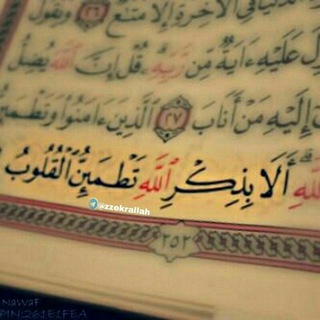 ٱلدُّنْيَا فِى ٱلْـَٔاخِرَةِ إِلَّا مَتَٰعٌ ٢٦ وَيَقُولُ
لَ عَلَيْهِ ءَايَةٌ مِّن رَّبِّهِۦ قُلْ إِنَّ ٱللَّهَ يُضِلُّ
إِلَيْهِ مَنْ أَنَابَ ٢٧ ٱلَّذِينَ ءَامَنُوا۟ وَتَطْمَئِنُّ
ٱللَّهِ أَلَا بِذِكْرِ ٱللَّهِ تَطْمَئِنُّ ٱلْقُلُوبُ
@zzekrallah
٢٥٢
Nawaf
PIN:261E1FEA